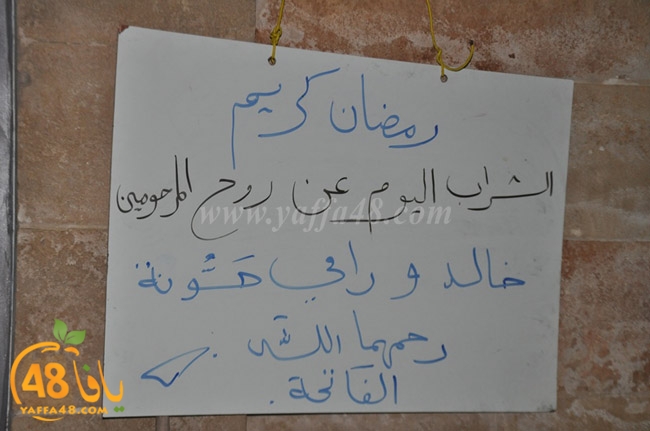 رمضان كريم
الشراب اليوم عن روح المرحومين
www.yaffa48.com
خالد و رامي حسُّونة
رحمهما الله .
الفاتحة .
يافا 48
YAFFA48.COM